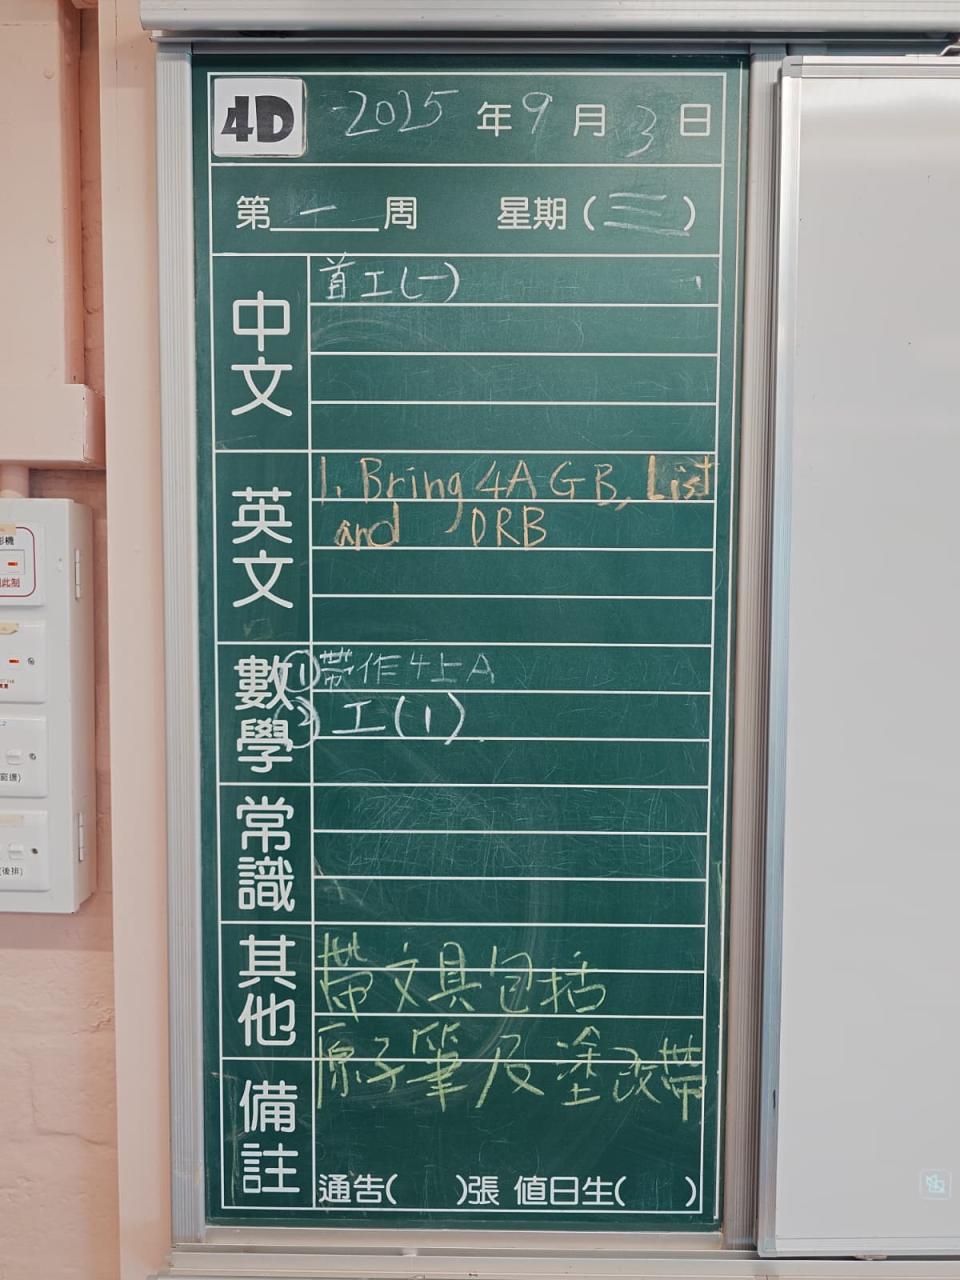 4D 2025年9月3日
第一周 星期(三)
中文
首工(一)
英文
1. Bring 4A GB, List
and DRB
數學
①帶作4上A
② 工(1)
常識
其他
帶文具包括
原子筆及塗改帶
備註
通告( )張 值日生( )
(後排)